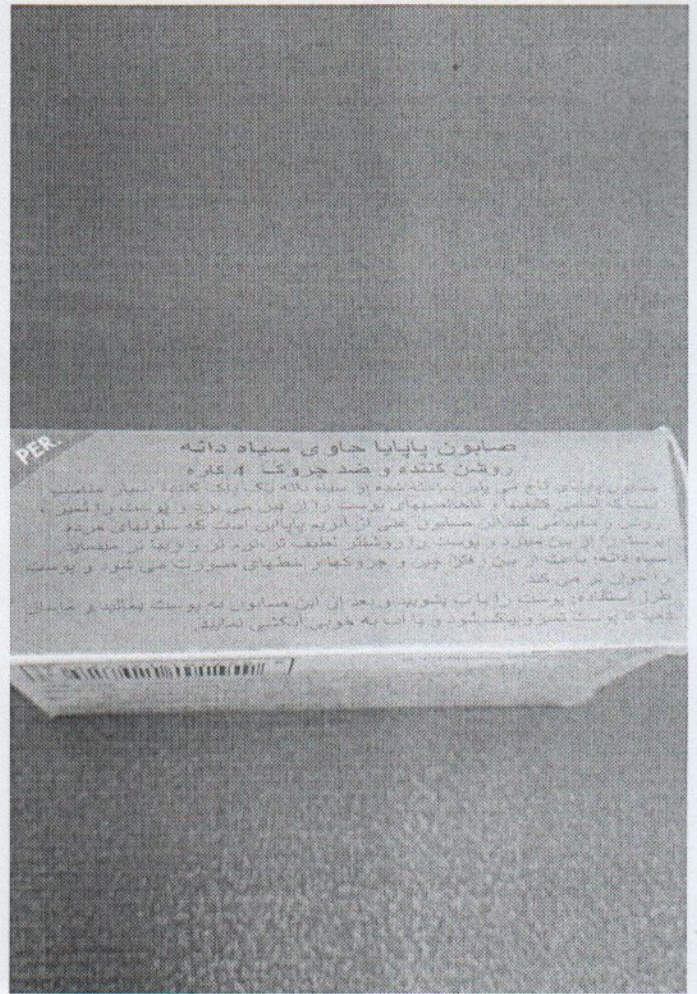 PER.
صابون پاپایا حاوی سیاه دانه
روشن کننده و ضد چروک 4 کاره
صابون پاپایای تاج می پلیر ساخته شده از سیاه دانه یک پاک کننده بسیار مناسب
است که تمامی کثیفیها و ناخالصیهای پوست را از بین می برد و پوست را تمیز ،
روشن و سفید می کند. این صابون غنی از آنزیم پاپاین است که سلولهای مرده
پوست را از بین میبرد و پوست را روشنتر، لطیف تر، نرم تر و زیبا تر مینماید.
سیاه دانه: باعث از بین رفتن چین و چروکها و خطهای صورت می شود و پوست
را جوان تر می کند.
طرز استفاده: پوست را با آب بشویید و بعد از این صابون به پوست بمالید و ماساژ
دهید تا پوست تمیز و پاک شود و با آب به خوبی آبکشی نمایید.